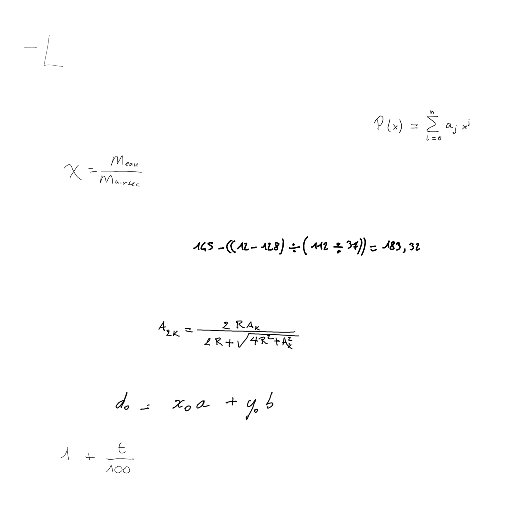 -L
P(x) = \sum_{i=0}^{n} a_j x^j
X = \frac{M_{eau}}{M_{air sec}}
145 - ((12 - 128) ÷ (112 ÷ 37)) = 183,32
A_{2K} = \frac{2 R A_K}{2R + \sqrt{4R^2 + A_K^2}}
d_0 = x_0 a + y_0 b
1 + \frac{t}{100}